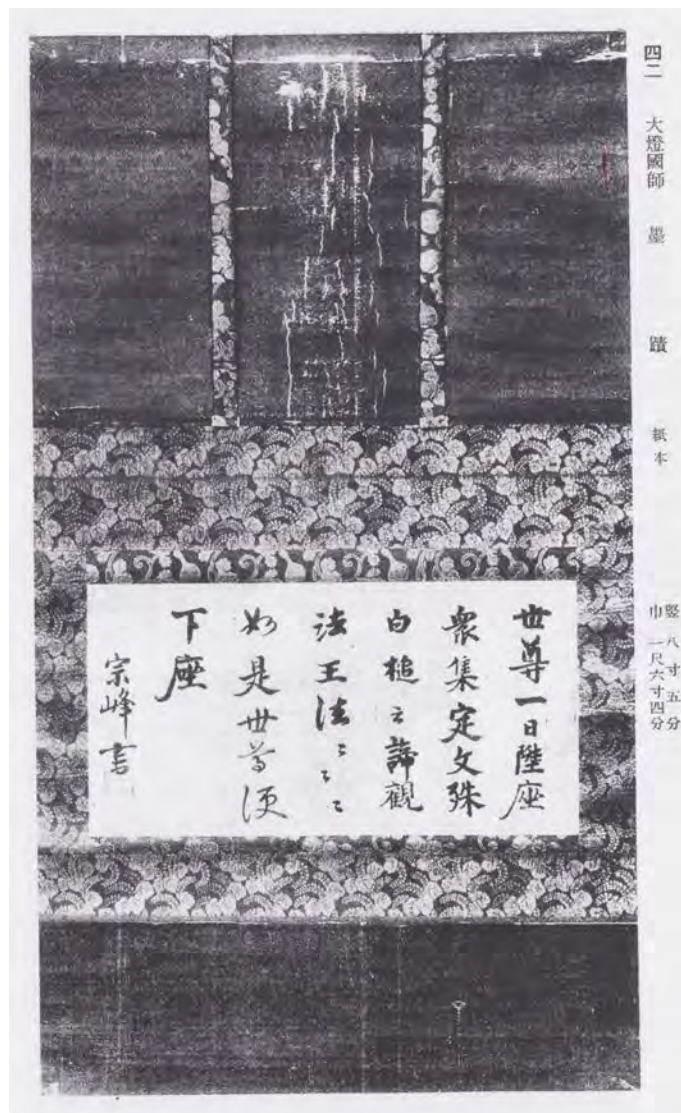 四二 大燈國師 墨蹟 紙本
竪八寸五分
巾一尺六寸四分
世尊一日陞座
衆集定文殊
白槌云諦觀
法王法〻〻〻
如是世尊便
下座
宗峰書